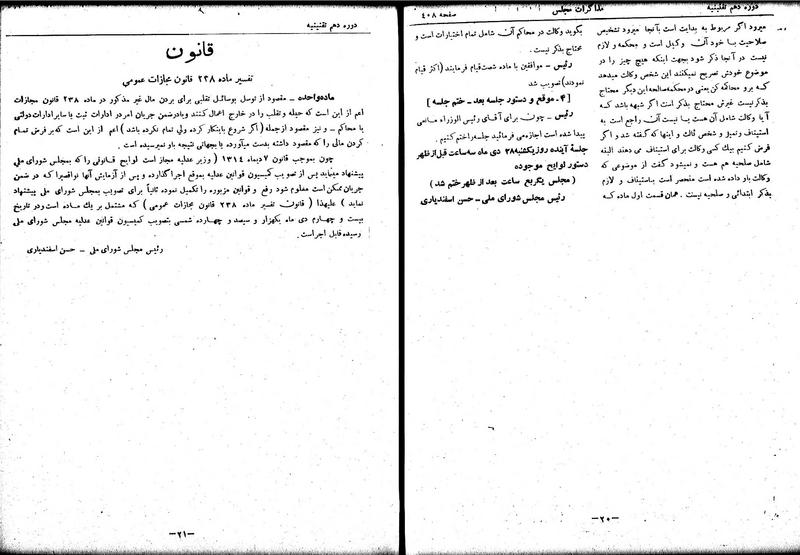 دوره دهم تقنینیه
مذاکرات مجلس
صفحه ۴۰۸
میرود اگر مربوط به بدایت است بآنجا میرود تشخیص
صلاحیت با خود آن وکیل است و محکمه و لازم
نیست در آنجا ذکر شود بجهت اینکه هیچ چیز را در
موضوع خودش تصریح نمیکنند این شخص وکالت میدهد
که برو محاکمه کن یعنی در محکمه صالحه این دیگر محتاج
بذکر نیست غیرش محتاج بذکر است اگر شبهه باشد که
آیا وکالت شامل آن هست یا نیست آن راجع است به
استیناف و تمیز و شخص ثالث و اینها که گفته شد و اگر
فرض کنیم یك کسی وکالت برای استیناف می دهند البته
شامل صلحیه هم هست و نمیشود گفت از موضوعی که
وکالت باو داده شده است منحصر است باستیناف و لازم
بذکر ابتدائی و صلحیه نیست . همان قسمت اول ماده که
بگوید وکالت در محاکم آن شامل تمام اختیارات است و
محتاج بذکر نیست .
رئیس ـ موافقین با ماده شصت قیام فرمایند (اکثر قیام
نمودند) تصویب شد
[ ۴ـ موقع و دستور جلسه بعد ـ ختم جلسه ]
رئیس ـ چون برای آقای رئیس الوزراء مانعی
پیدا شده است اجازه می فرمائید جلسه را ختم کنیم .
جلسهٔ آینده روز یکشنبه ۲۸ دی ماه سه ساعت قبل از ظهر
دستور لوایح موجوده
( مجلس یکربع ساعت بعد از ظهر ختم شد )
رئیس مجلس شورای ملی ـ حسن اسفندیاری
ـ۲۰ـ
دوره دهم تقنینیه
قانون
تفسیر ماده ۲۳۸ قانون مجازات عمومی
ماده واحده ـ مقصود از توسل بوسائل تقلبی برای بردن مال غیر مذکور در ماده ۲۳۸ قانون مجازات
اعم از این است که حیله و تقلب را در خارج اعمال کنند و یا در ضمن جریان امر در ادارات ثبت یا سایر ادارات دولتی
یا محاکم ـ و نیز مقصود از جمله ( اگر شروع باینکار کرده ولی تمام نکرده باشد ) اعم از این است که بر فرض تمام
کردن مالی را که مقصود داشته بدست میآورده یا بجهاتی نتیجه باو نمیرسیده است .
چون بموجب قانون ۷ دیماه ۱۳۱۴ ( وزیر عدلیه مجاز است لوایح قانونی را که بمجلس شورای ملی
پیشنهاد مینماید پس از تصویب کمیسیون قوانین عدلیه بموقع اجرا گذارده و پس از آزمایش آنها نواقصیرا که در ضمن
جریان ممکن است معلوم شود رفع و قوانین مزبوره را تکمیل نموده ثانیاً برای تصویب بمجلس شورای ملی پیشنهاد
نماید ) علیهذا ( قانون تفسیر ماده ۲۳۸ قانون مجازات عمومی ) که مشتمل بر یك ماده است و در تاریخ
بیست و چهارم دی ماه یکهزار و سیصد و چهارده شمسی بتصویب کمیسیون قوانین عدلیه مجلس شورای ملی
رسیده قابل اجر است .
رئیس مجلس شورای ملی ـ حسن اسفندیاری
ـ۲۱ـ